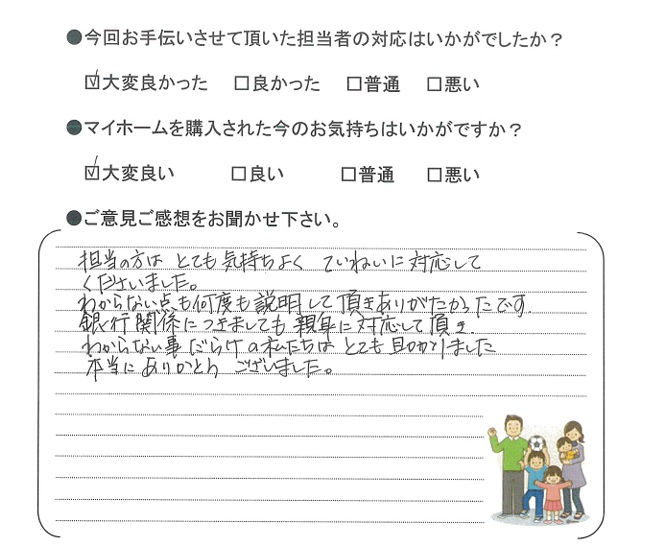 ●今回お手伝いさせて頂いた担当者の対応はいかがでしたか？
☑大変良かった □良かった □普通 □悪い
●マイホームを購入された今のお気持ちはいかがですか？
☑大変良い □良い □普通 □悪い
●ご意見ご感想をお聞かせ下さい。
担当の方は とても気持ちよく ていねいに対応して
くださいました。
わからない点も何度も説明して頂きありがたかったです.
銀行関係につきましても親身に対応して頂き
わからない事だらけの私たちは とても助かりました
本当にありがとう ございました。